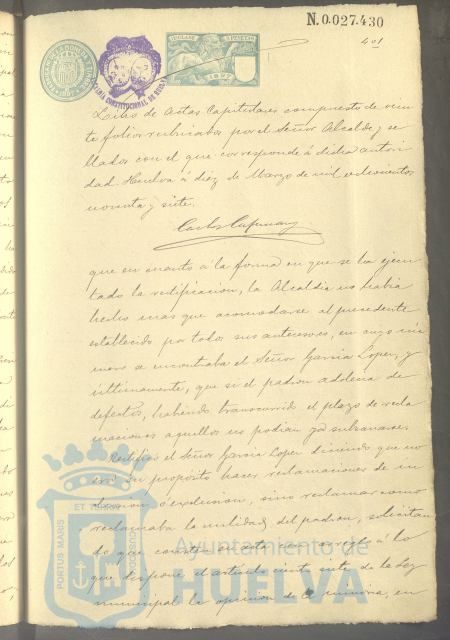 N.0.027.430
401
1897
Libro de Actas Capitulares compuesto de vein
te folios rubricados por el Señor Alcalde y se
llados con el que corresponde á dicha autori
dad. Huelva á diez de Marzo de mil ochocientos
noventa y siete.
Carlos
que en cuanto á la forma en que se ha ejecu
tado la rectificacion, la Alcaldía no habia
hecho mas que acomodarse al precedente
establecido por todos sus antecesores, en cuyo nú
mero se encontraba el Señor Garcia Lopez, y
últimamente, que si el padron adolecia de
defectos, habiendo transcurrido el plazo de recla
maciones aquellos no podian ya subsanarse.
Rectificó el Señor Garcia Lopez diciendo que no
era su propósito hacer reclamaciones de in
clusion ó exclusion, sino reclamar como
reclamaba la nulidad del padron, solicitan
do que conste en acta con arreglo á lo
que dispone el artículo ciento siete de la Ley
municipal la opinion de la minoria, en
PORTUS MARIS
ET TERRAE
CUSTODIA
Ayuntamiento de
HUELVA